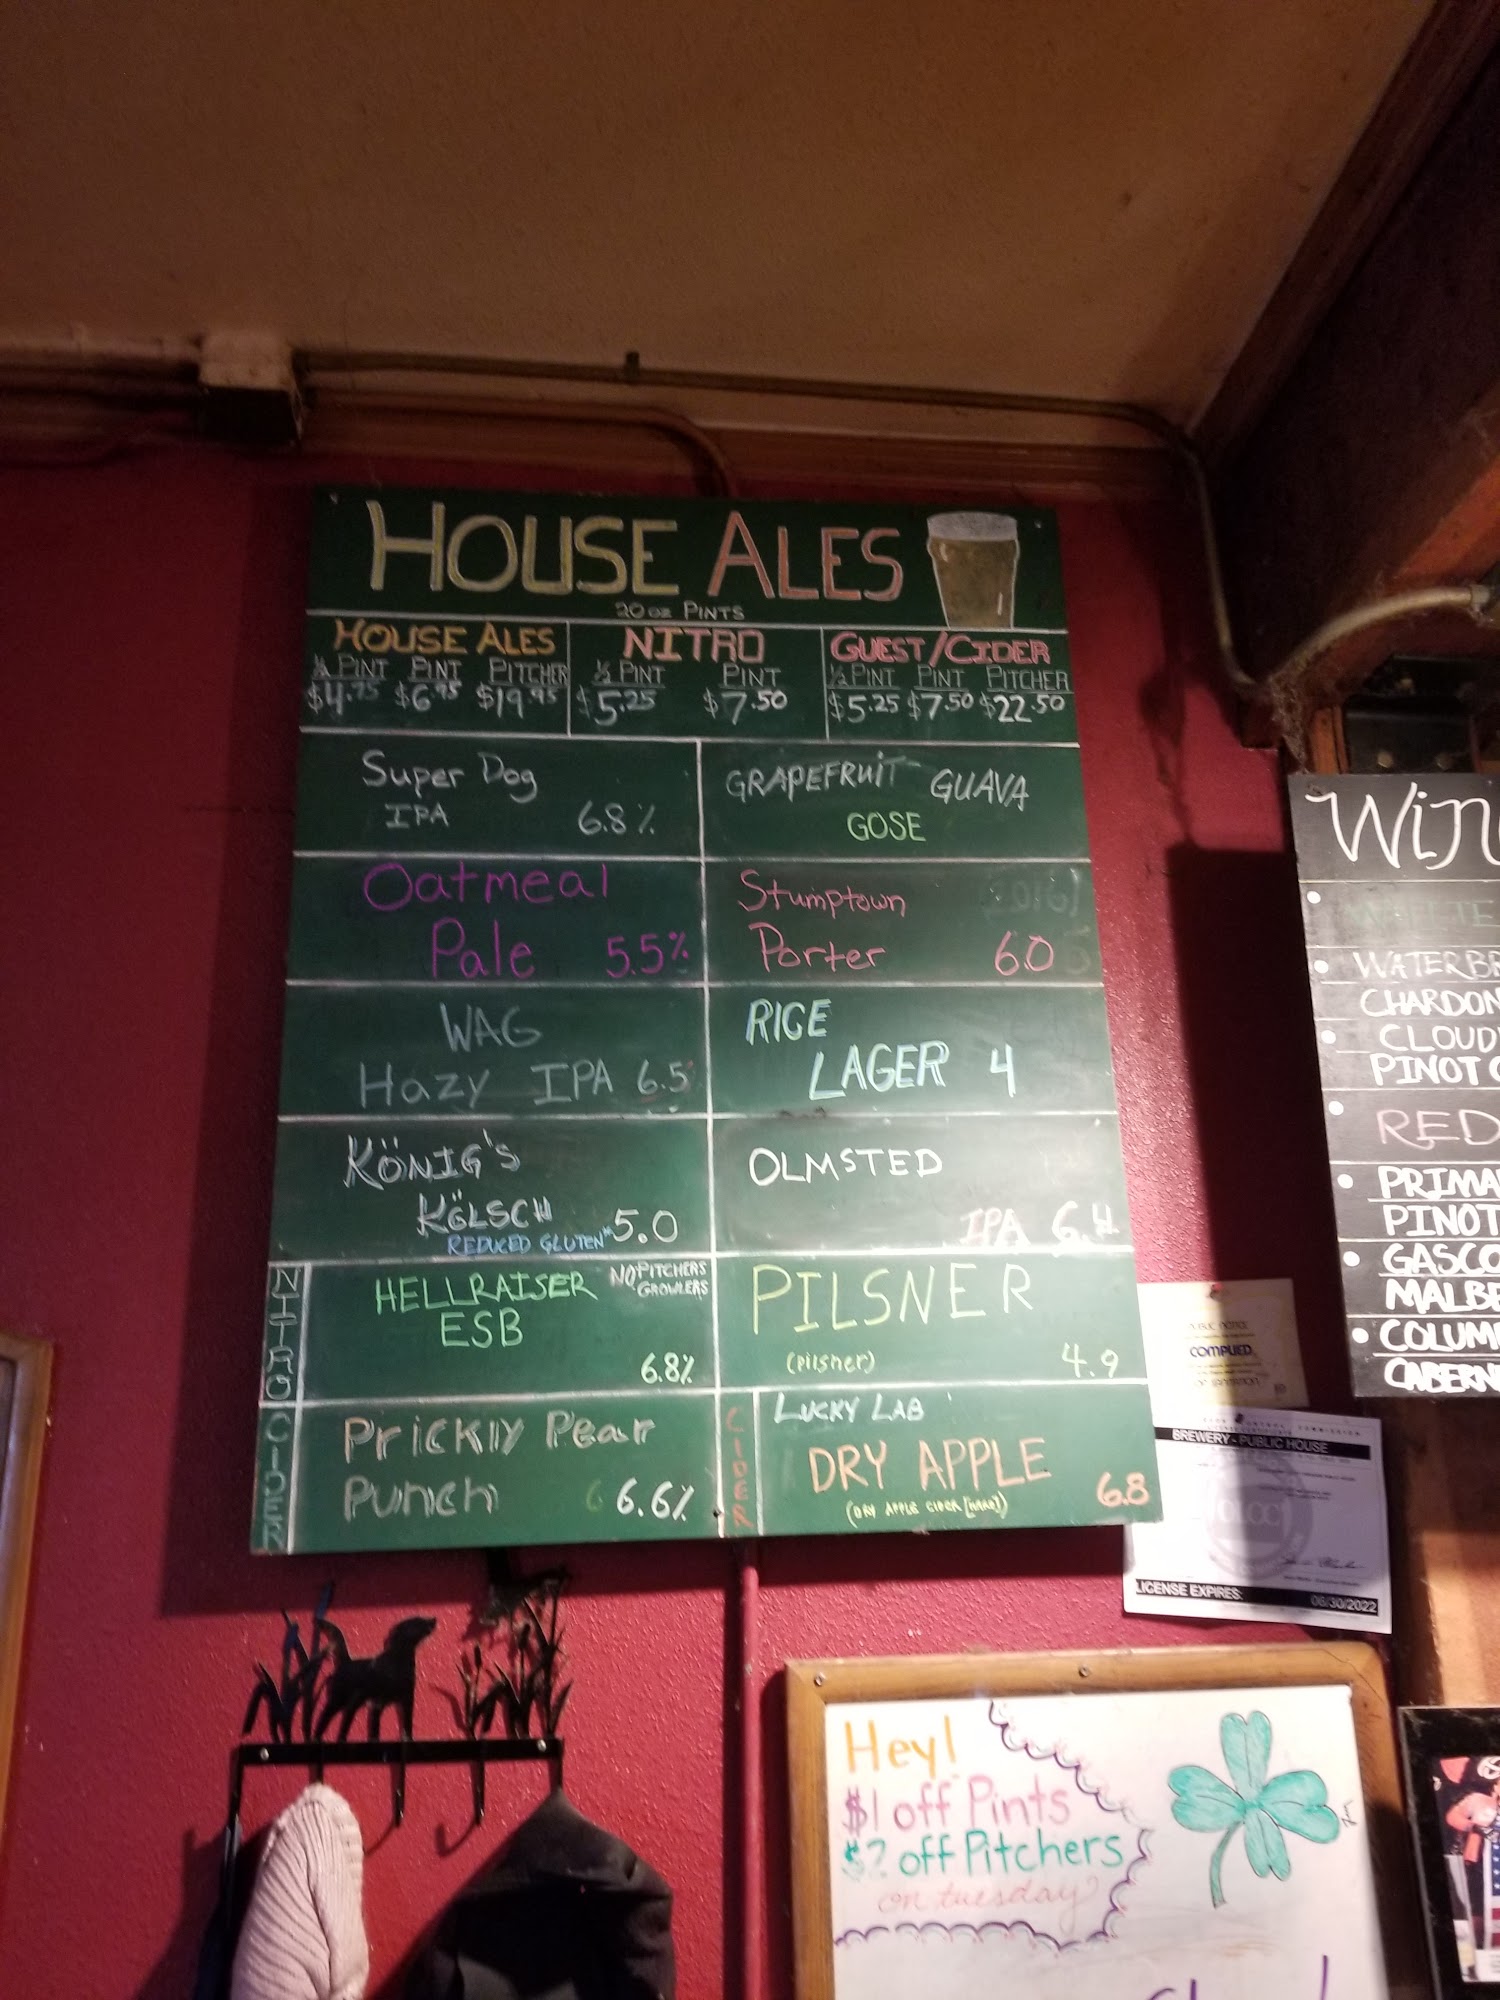 HOUSE ALES
20 oz PINTS
HOUSE ALES
½ PINT PINT PITCHER
$4.75 $6.95 $19.95
NITRO
½ PINT PINT
$5.25 $7.50
GUEST/CIDER
½ PINT PINT PITCHER
$5.25 $7.50 $22.50
Super Dog
IPA 6.8%
Oatmeal
Pale 5.5%
WAG
Hazy IPA 6.5
KÖNIG'S
KÖLSCH
REDUCED GLUTEN* 5.0
NITRO
HELLRAISER
ESB
NO PITCHERS
GROWLERS
6.8%
CIDER
Prickly Pear
Punch 6.6%
GRAPEFRUIT GUAVA
GOSE
Stumptown
Porter 6.0
RICE
LAGER 4
OLMSTED
IPA 6.4
PILSNER
(pilsner) 4.9
CIDER
LUCKY LAB
DRY APPLE
(DRY APPLE CIDER [HARD]) 6.8
WIN
WHITE
WATERBR
CHARDON
CLOUD
PINOT
RED
PRIMA
PINOT
GASCO
MALBE
COLUM
CABERN
PUBLIC NOTICE
COMPLIED
BREWERY - PUBLIC HOUSE
OLCC
LICENSE EXPIRES: 06/30/2022
Hey!
$1 off Pints
$2 off Pitchers
on tuesday